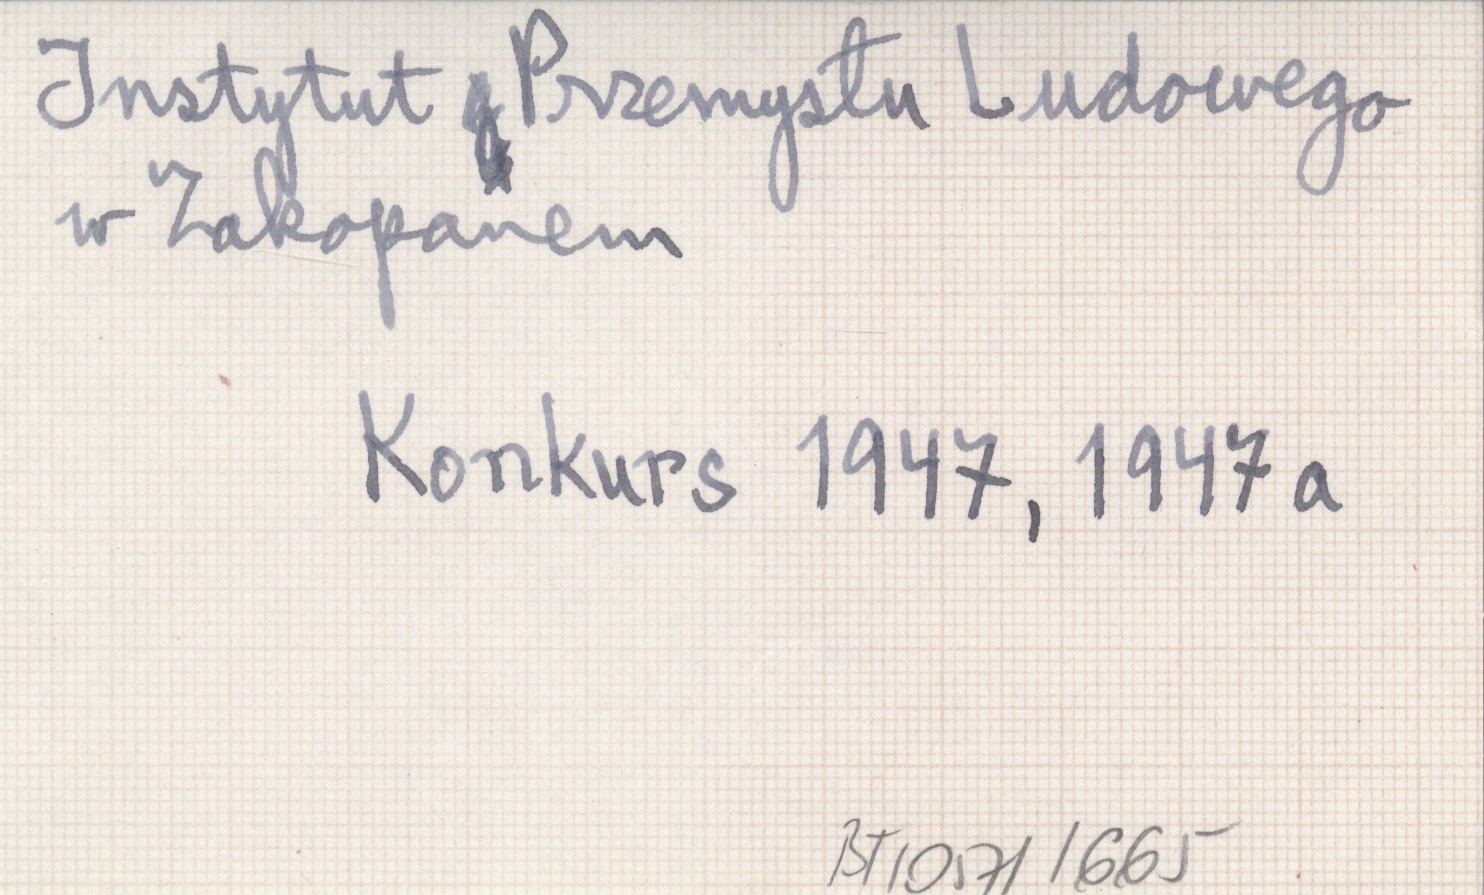 Instytut Przemysłu Ludowego
w Zakopanem
Konkurs 1947, 1947a
BT/1057/1665